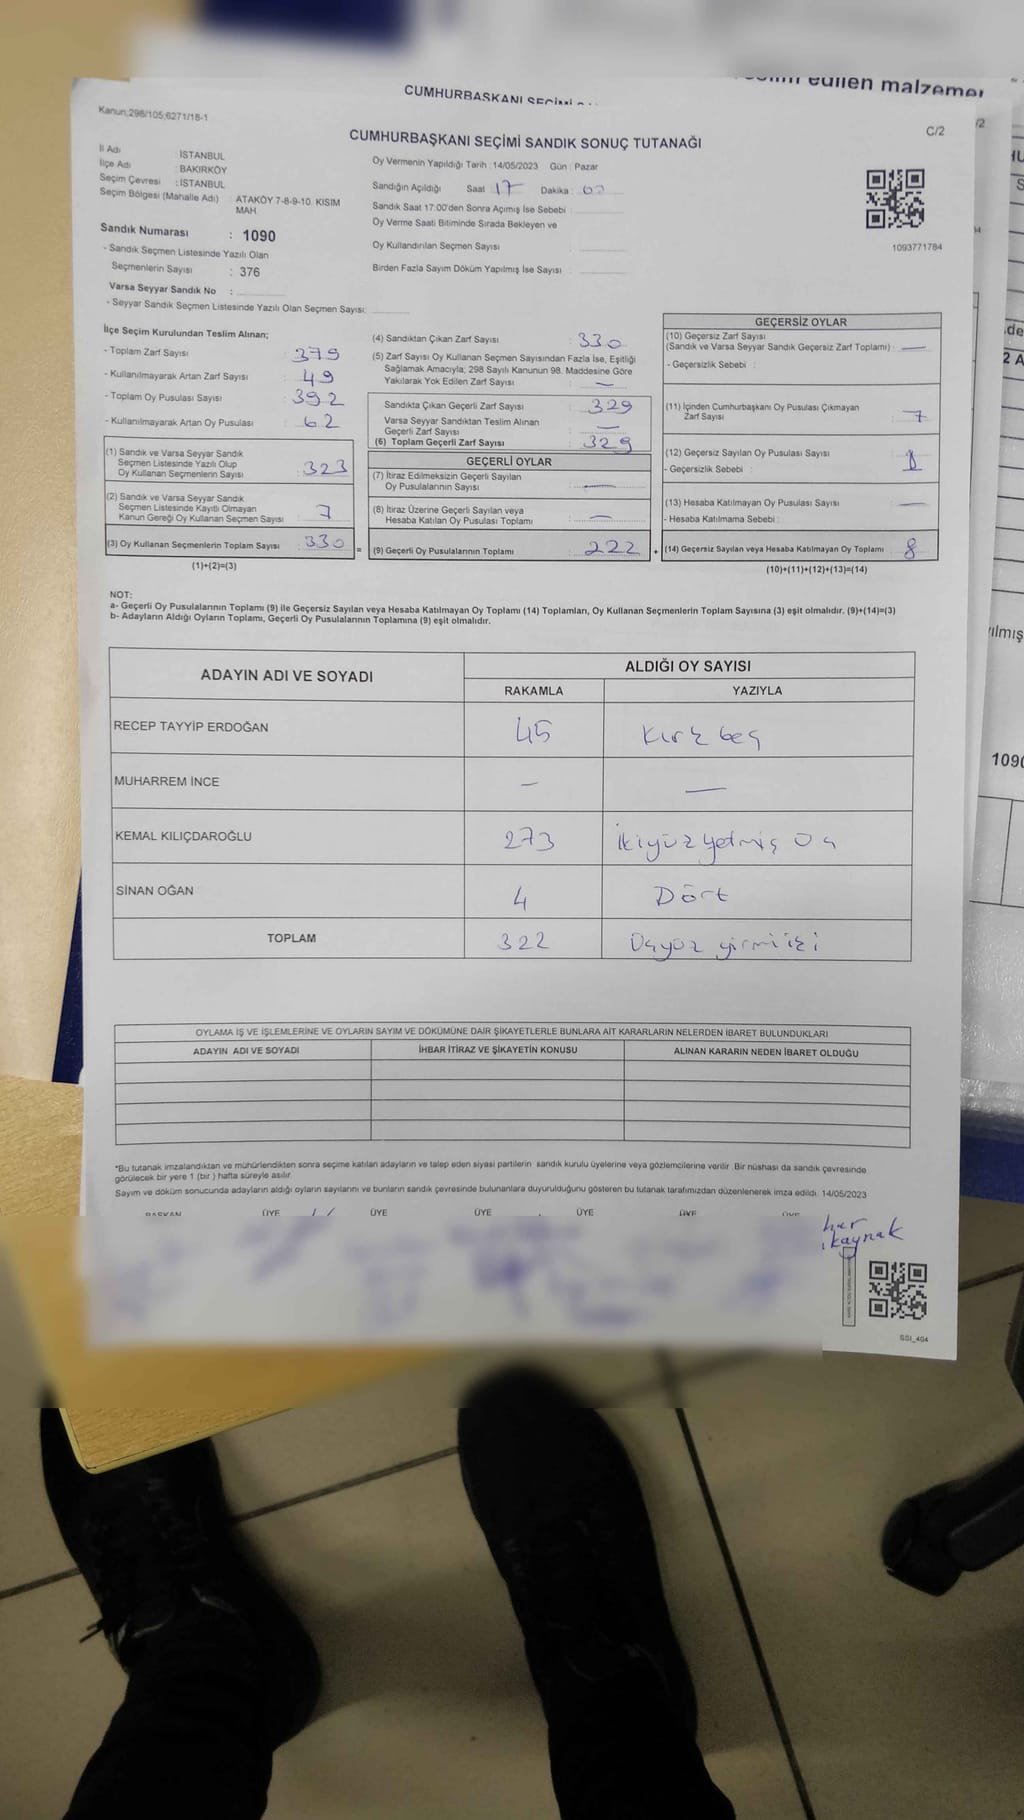 CUMHURBAŞKANI SEÇİMİ
edilen malzemer
Kanun;298/105;6271/18-1
C/2
/2
CUMHURBAŞKANI SEÇİMİ SANDIK SONUÇ TUTANAĞI
İl Adı : İSTANBUL
İlçe Adı : BAKIRKÖY
Seçim Çevresi : İSTANBUL
Seçim Bölgesi (Mahalle Adı) ATAKÖY 7-8-9-10. KISIM MAH.
Sandık Numarası : 1090
- Sandık Seçmen Listesinde Yazılı Olan
Seçmenlerin Sayısı : 376
Varsa Seyyar Sandık No :
- Seyyar Sandık Seçmen Listesinde Yazılı Olan Seçmen Sayısı:
Oy Vermenin Yapıldığı Tarih : 14/05/2023 Gün : Pazar
Sandığın Açıldığı Saat 17 Dakika :
Sandık Saat 17:00'den Sonra Açımış İse Sebebi :
Oy Verme Saati Bitiminde Sırada Bekleyen ve
Oy Kullandırılan Seçmen Sayısı :
Birden Fazla Sayım Döküm Yapılmış İse Sayısı :
1093771784
İlçe Seçim Kurulundan Teslim Alınan;
- Toplam Zarf Sayısı : 379
- Kullanılmayarak Artan Zarf Sayısı : 49
- Toplam Oy Pusulası Sayısı : 392
- Kullanılmayarak Artan Oy Pusulası : 62
(1) Sandık ve Varsa Seyyar Sandık
Seçmen Listesinde Yazılı Olup
Oy Kullanan Seçmenlerin Sayısı : 323
(2) Sandık ve Varsa Seyyar Sandık
Seçmen Listesinde Kayıtlı Olmayan
Kanun Gereği Oy Kullanan Seçmen Sayısı : 7
(3) Oy Kullanan Seçmenlerin Toplam Sayısı : 330
(1)+(2)=(3)
(4) Sandıktan Çıkan Zarf Sayısı : 330
(5) Zarf Sayısı Oy Kullanan Seçmen Sayısından Fazla İse, Eşitliği
Sağlamak Amacıyla; 298 Sayılı Kanunun 98. Maddesine Göre
Yakılarak Yok Edilen Zarf Sayısı : —
Sandıkta Çıkan Geçerli Zarf Sayısı : 329
Varsa Seyyar Sandıktan Teslim Alınan
Geçerli Zarf Sayısı : —
(6) Toplam Geçerli Zarf Sayısı : 329
GEÇERLİ OYLAR
(7) İtiraz Edilmeksizin Geçerli Sayılan
Oy Pusulalarının Sayısı : —
(8) İtiraz Üzerine Geçerli Sayılan veya
Hesaba Katılan Oy Pusulası Toplamı : —
= (9) Geçerli Oy Pusulalarının Toplamı : 222 +
GEÇERSİZ OYLAR
(10) Geçersiz Zarf Sayısı
(Sandık ve Varsa Seyyar Sandık Geçersiz Zarf Toplamı) : —
- Geçersizlik Sebebi :
(11) İçinden Cumhurbaşkanı Oy Pusulası Çıkmayan
Zarf Sayısı : 7
(12) Geçersiz Sayılan Oy Pusulası Sayısı : 1
- Geçersizlik Sebebi :
(13) Hesaba Katılmayan Oy Pusulası Sayısı : —
- Hesaba Katılmama Sebebi :
(14) Geçersiz Sayılan veya Hesaba Katılmayan Oy Toplamı : 8
(10)+(11)+(12)+(13)=(14)
NOT:
a- Geçerli Oy Pusulalarının Toplamı (9) ile Geçersiz Sayılan veya Hesaba Katılmayan Oy Toplamı (14) Toplamları, Oy Kullanan Seçmenlerin Toplam Sayısına (3) eşit olmalıdır. (9)+(14)=(3)
b- Adayların Aldığı Oyların Toplamı, Geçerli Oy Pusulalarının Toplamına (9) eşit olmalıdır.
ADAYIN ADI VE SOYADI ALDIĞI OY SAYISI
RAKAMLA YAZIYLA
RECEP TAYYİP ERDOĞAN 45 Kırk beş
MUHARREM İNCE — —
KEMAL KILIÇDAROĞLU 273 İkiyüz yetmiş üç
SİNAN OĞAN 4 Dört
TOPLAM 322 Üçyüz yirmi iki
OYLAMA İŞ VE İŞLEMLERİNE VE OYLARIN SAYIM VE DÖKÜMÜNE DAİR ŞİKAYETLERLE BUNLARA AİT KARARLARIN NELERDEN İBARET BULUNDUKLARI
ADAYIN ADI VE SOYADI İHBAR İTİRAZ VE ŞİKAYETİN KONUSU ALINAN KARARIN NEDEN İBARET OLDUĞU
*Bu tutanak imzalandıktan ve mühürlendikten sonra seçime katılan adayların ve talep eden siyasi partilerin sandık kurulu üyelerine veya gözlemcilerine verilir. Bir nüshası da sandık çevresinde
görülecek bir yere 1 (bir ) hafta süreyle asılır.
Sayım ve döküm sonucunda adayların aldığı oyların sayılarını ve bunların sandık çevresinde bulunanlara duyurulduğunu gösteren bu tutanak tarafımızdan düzenlenerek imza edildi. 14/05/2023
BAŞKAN ÜYE ÜYE ÜYE ÜYE ÜYE ÜYE
kaynak
SSI_404
ılmış
1090